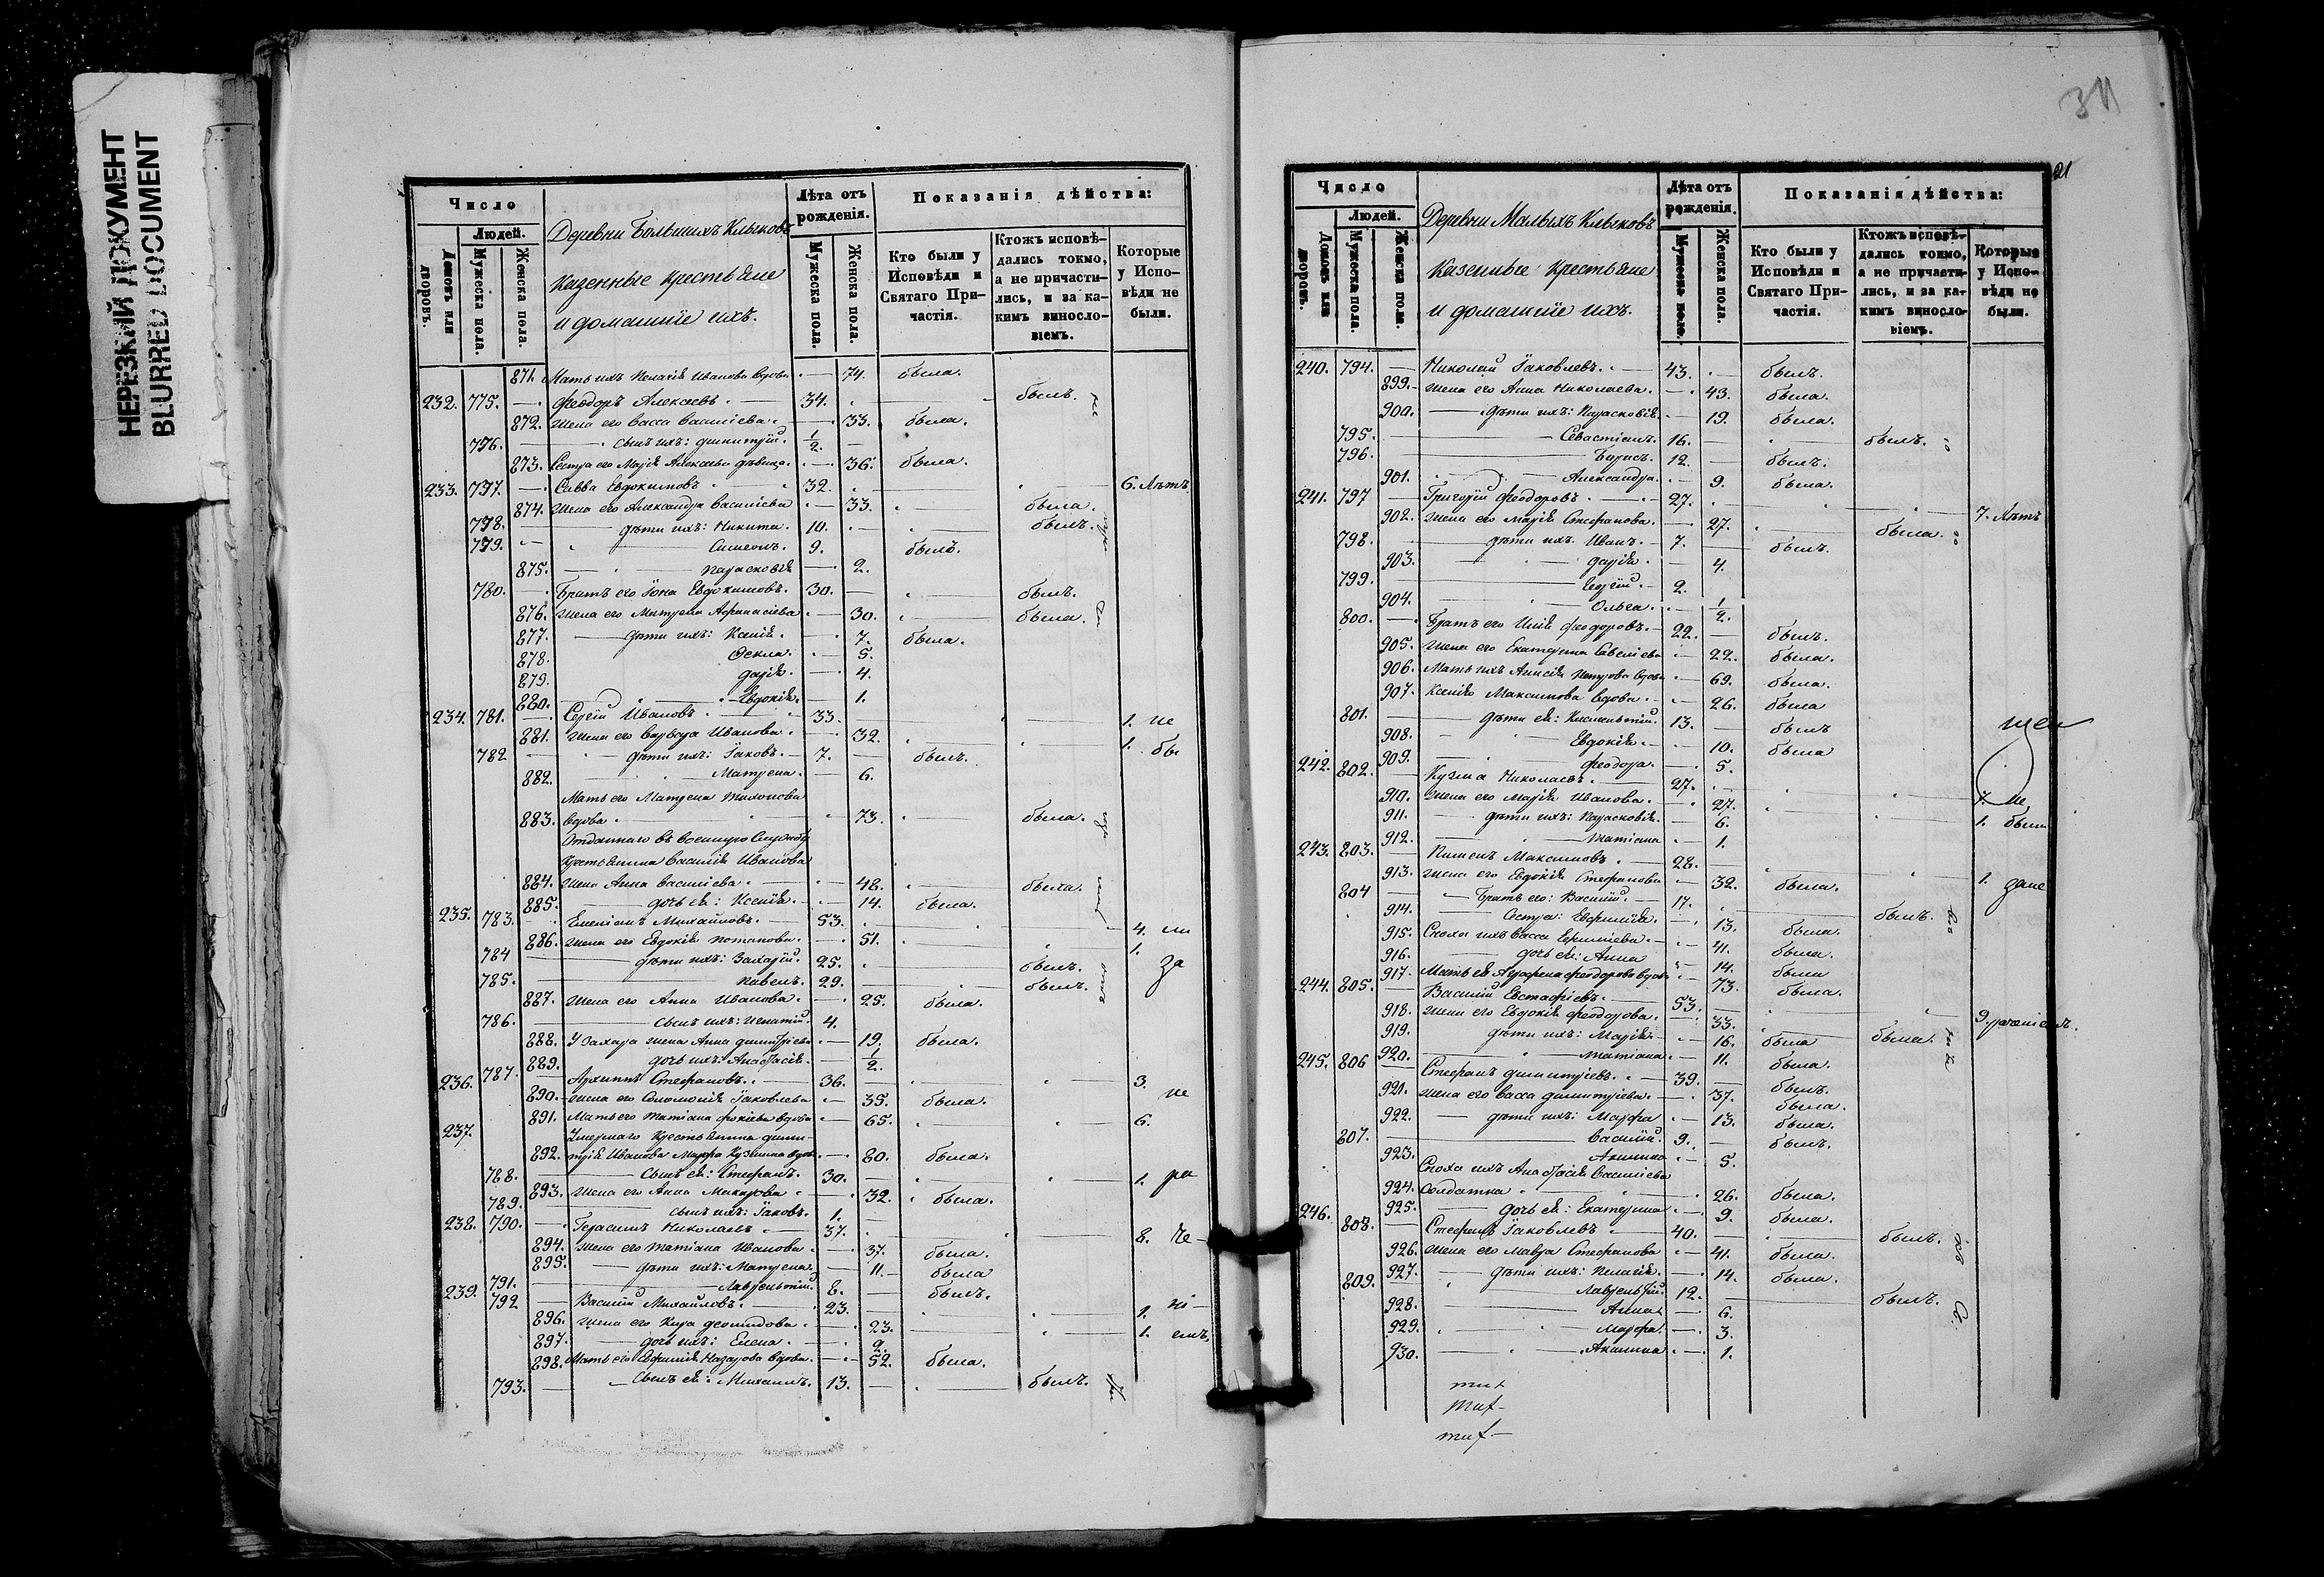 НЕРЕЗКИЙ ДОКУМЕНТ
BLURRED DOCUMENT
Число
Людей.
Домовъ или дворовъ.
Мужеска пола.
Женска пола.
Деревни Большихъ Клыковъ
казенные крестьяне
и домашніе ихъ.
Лѣта отъ рожденія.
Мужеска пола.
Женска пола.
Показанія дѣйства:
Кто были у Исповѣди и Святаго Причастія.
Ктожъ исповѣдались токмо, а не причастились, и за какимъ винословіемъ.
Которые у Исповѣди не были.
871. Мать ихъ Пелагія Иванова вдова 74. была.
232. 775. Феодоръ Алексеевъ. 34. былъ.
872. Жена его Васса Василіева. 33. была.
776. сынъ ихъ: Димитрій. 1/2.
873. Сестра его Марія Алексеева дѣвица. 36. была.
233. 777. Савва Евдокимовъ 32. 6. лѣтъ
874. Жена его Александра Василіева 33. была.
778. дѣти ихъ: Никита. 10. былъ.
779. Симеонъ. 9. былъ.
875. Парасковія 2.
780. Братъ его Іона Евдокимовъ. 30. былъ.
876. Жена его Матрена Афанасіева 30. была.
877. дѣти ихъ: Ксенія. 7. была.
878. Фекла. 5.
879. Дарія. 4.
880. Евдокія. 1.
234. 781. Сергій Ивановъ. 33. 1. не
881. Жена его Варвара Иванова. 32. 1. бы
782 дѣти ихъ: Іаковъ. 7. былъ.
882. Матрена. 6.
Мать его Матрена Тихонова
883. вдова. 73. была.
Отданнаго въ военную службу
крестьянина Василія Иванова
884. жена Анна Василіева. 48. была.
885. дочь ея: Ксенія. 14. была.
235. 783. Емеліанъ Михайловъ. 53. 4. ли
886. Жена его Евдокія Потапова. 51. 1.
784 дѣти ихъ: Захарій. 25. былъ. за
785. Павелъ. 29. былъ.
887. Жена его Анна Иванова. 25. была.
786. сынъ ихъ: Игнатій. 4.
888. У Захара жена Анна Димитріева 19. была.
889. дочь ихъ: Анастасія. 1/2.
236. 787. Архиппъ Стефановъ. 36. 3.
890. Жена его Соломонія Іаковлева 35. была. не
891. Мать его Татіана Фокіева вдова 65. 6.
237. Умершаго крестьянина Дими-
892. трія Иванова Марфа Кузмина вдова 80. была.
788. Сынъ ея: Стефанъ. 30. 1. ра
893. Жена его Анна Макарова 32. была.
789. сынъ ихъ: Іаковъ. 1.
238. 790. Герасимъ Николаевъ 37. 8. че-
894. Жена его Татіана Иванова 37. была.
895. дѣти ихъ: Матрена. 11. была
791. Лаврентій. 8. былъ.
239. 792 Василій Михайловъ. 23. 1. ні-
896. Жена его Кира Леонидова. 23. 1. емъ,
897. дочь ихъ: Елена. 2.
898. Мать его Евфимія Назарова вдова. 52. была.
793. Сынъ ея: Михаилъ. 13. былъ.
21
Число
Людей.
Домовъ или дворовъ.
Мужеска пола.
Женска пола.
Деревни Малыхъ Клыковъ
Казенные крестьяне
и домашніе ихъ.
Лѣта отъ рожденія.
Мужеска пола.
Женска пола.
Показанія дѣйства:
Кто были у Исповѣди и Святаго Причастія.
Ктожъ исповѣдались токмо, а не причастились, и за какимъ винословіемъ.
Которые у Исповѣди не были.
240. 794. Николай Іаковлевъ. 43. былъ.
899. Жена его Анна Николаева. 43. была.
900. дѣти ихъ: Парасковія. 19. была.
795. Севастіанъ. 16. былъ.
796. Борисъ. 12. былъ.
901. Александра. 9. была.
241. 797 Григорій Феодоровъ. 27. 7. лѣтъ
902. Жена его Марія Стефанова. 27. была.
798. дѣти ихъ: Иванъ. 7. былъ.
903. Дарія. 4.
799. Сергій. 2.
904. Ольга. 1/2.
800. Братъ его Илія Феодоровъ. 22. былъ.
905. Жена его Екатерина Савеліева 22. была.
906. Мать ихъ Анисія Петрова вдова 69. была.
907. Ксенія Максимова вдова. 26. была
801. дѣти ея: Климентій. 13. былъ
908. Евдокія. 10. была
909. Феодора. 5.
242. 802. Кузма Николаевъ. 27. 7. не,
910. Жена его Марія Иванова. 27. 1. были
911. дѣти ихъ: Парасковія. 6.
912. Татіана 1.
243. 803. Пименъ Максимовъ. 28. 1. зане
913. Жена его Евдокія Стефанова 32. была.
804 Братъ его: Василій. 17. былъ.
914. Сестра: Евфимія. 13. была.
915. Сноха ихъ Васса Ефиміева. 41. была.
916. дочь ея: Анна 14. была
917. Мать ея Агрофена Феодорова вдова 73. была.
244. 805. Василій Евстафіевъ. 53. 9.
918. Жена его Евдокія Феодорова. 33. была.
919. дѣти ихъ: Марія. 16. была
920. Татіана. 11. была.
245. 806 Стефанъ Димитріевъ. 39. былъ.
921. Жена его Васса Димитріева. 37. была.
922. дѣти ихъ: Марфа 13. была.
807. Василій. 9. былъ.
923. Акилина 5.
Сноха ихъ Анастасія Василіева
924. солдатка 26. была.
925. дочь ея: Екатерина. 9. была.
246. 808. Стефанъ Іаковлевъ 40. былъ.
926. Жена его Мавра Стефанова 41. была.
927. дѣти ихъ: Пелагія. 14. была.
809. Лаврентій. 12. былъ.
928. Анна 6.
929. Марфа. 3.
930. Акилина 1.